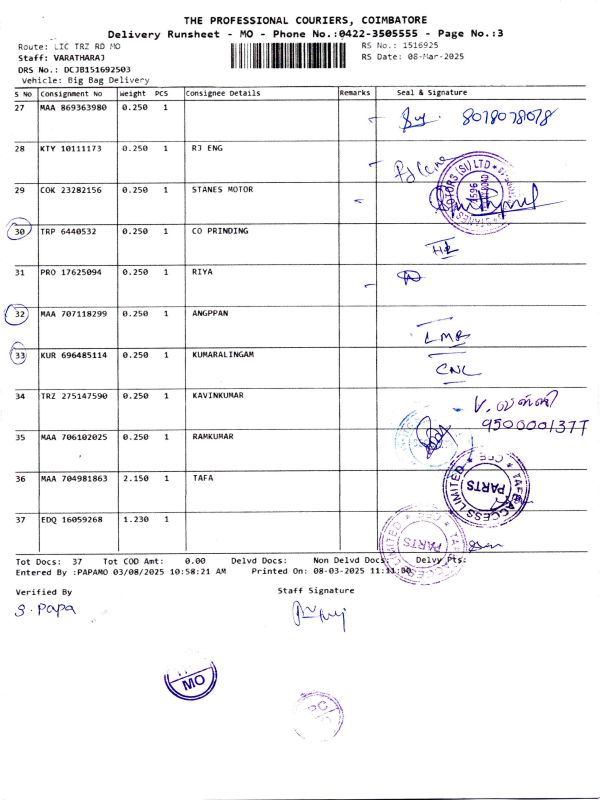 THE PROFESSIONAL COURIERS, COIMBATORE
Delivery Runsheet - MO - Phone No.:0422-3505555 - Page No.:3
Route: LIC TRZ RD MO RS No.: 1516925
Staff: VARATHARAJ RS Date: 08-Mar-2025
DRS No.: DCJB151692503
Vehicle: Big Bag Delivery
S No Consignment No Weight PCS Consignee Details Remarks Seal & Signature
27 MAA 869363980 0.250 1 8078078078
28 KTY 10111173 0.250 1 RJ ENG
29 COK 23282156 0.250 1 STANES MOTOR
STANES MOTORS (SI) LTD
30 TRP 6440532 0.250 1 CO PRINDING
31 PRO 17625094 0.250 1 RIYA
32 MAA 707118299 0.250 1 ANGPPAN
LMR
33 KUR 696485114 0.250 1 KUMARALINGAM
CNL
34 TRZ 275147590 0.250 1 KAVINKUMAR
9500001377
35 MAA 706102025 0.250 1 RAMKUMAR
36 MAA 704981863 2.150 1 TAFA
TAFE ACCESS LIMITED CBE PARTS
37 EDQ 16059268 1.230 1
TAFE ACCESS LIMITED CBE PARTS
Tot Docs: 37 Tot COD Amt: 0.00 Delvd Docs: Non Delvd Docs: Delvy Pts:
Entered By :PAPAMO 03/08/2025 10:58:21 AM Printed On: 08-03-2025 11:11:
Verified By Staff Signature
S. Papa
MO